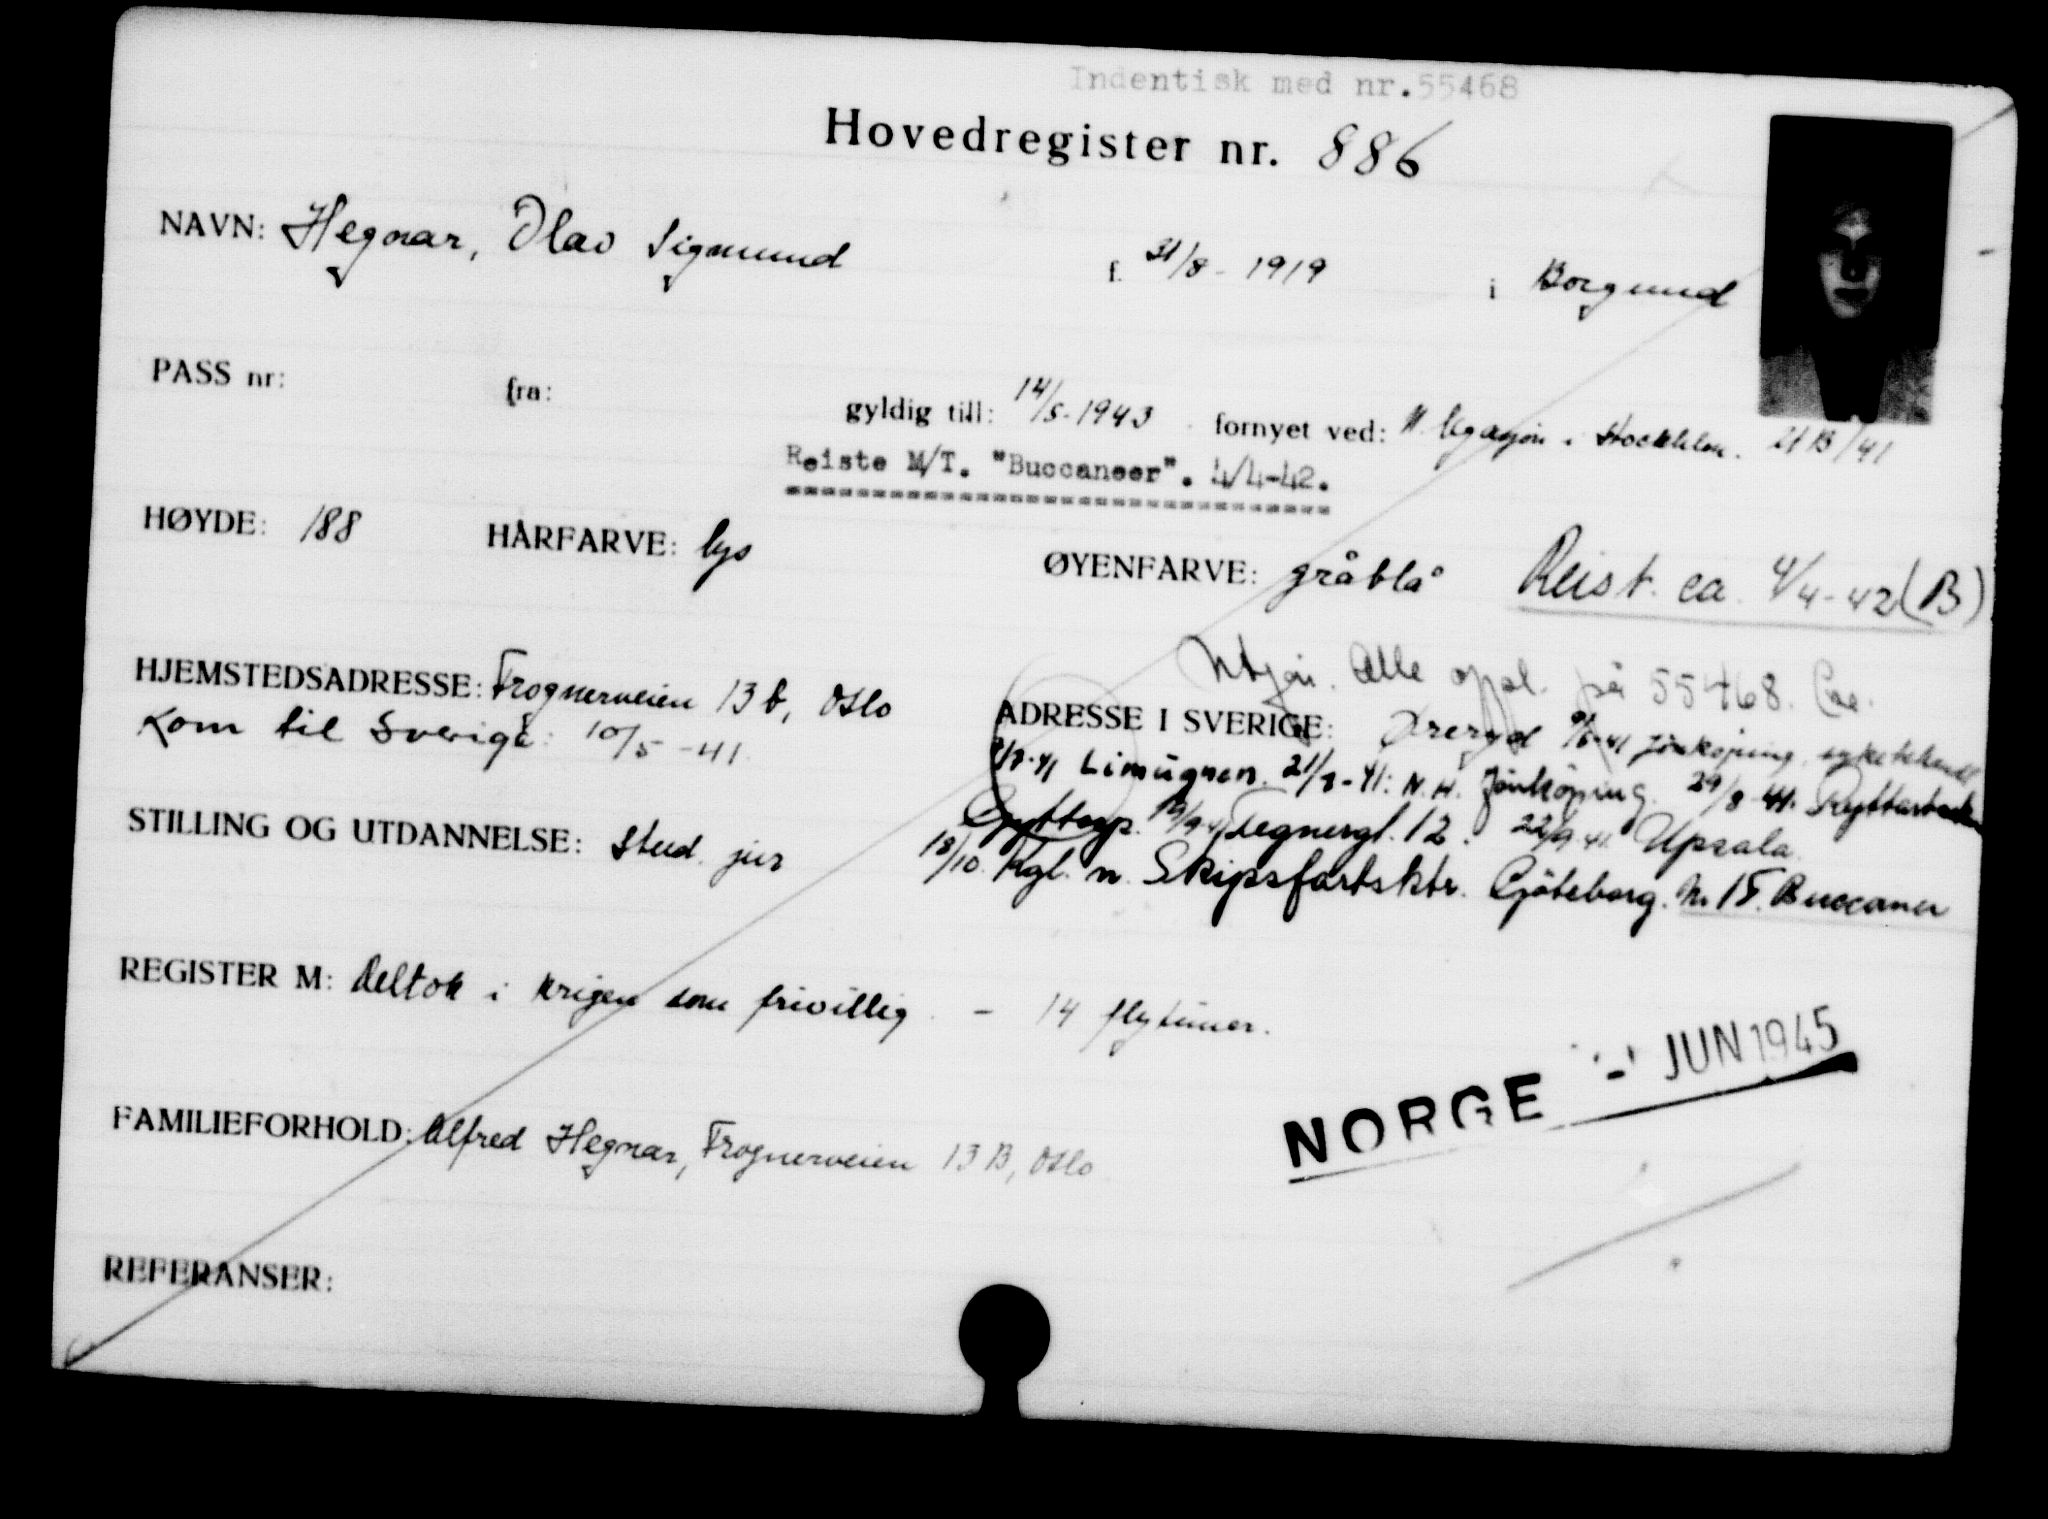 Indentisk med nr.55468
Hovedregister nr. 886
NAVN: Hegnar, Olav Sigmund f. 31/8 - 1919 i Borgund
PASS nr: fra: gyldig till: 14/5-1943 fornyet ved: N. legasjon i Stockholm. 21/B/41
Reiste M/T. "Buccaneer". 4/4-42.
HØYDE: 188 HÅRFARVE: lys ØYENFARVE: gråblå Reist. ca. 4/4-42 (B)
Alle oppl. på 55468.
HJEMSTEDSADRESSE: Frognerveien 13 b, Oslo ADRESSE I SVERIGE: Øreryd Jönköping
Kom til Sverige: 10/5 -41. Limugnen. 21/8-41: N.H. Jönköping. 29/8 41.
STILLING OG UTDANNELSE: Stud. jur Gyttorp. Tegnergt. 12. 22/9.41. Upsala.
18/10. Kgl. n. Skipsfartsktr. Gjöteborg. M/T. Buccaner
REGISTER M: Deltok i krigen som frivillig. - 14 flytimer.
NORGE JUN 1945
FAMILIEFORHOLD: Alfred Hegnar, Frognerveien 13 B, Oslo
REFERANSER: